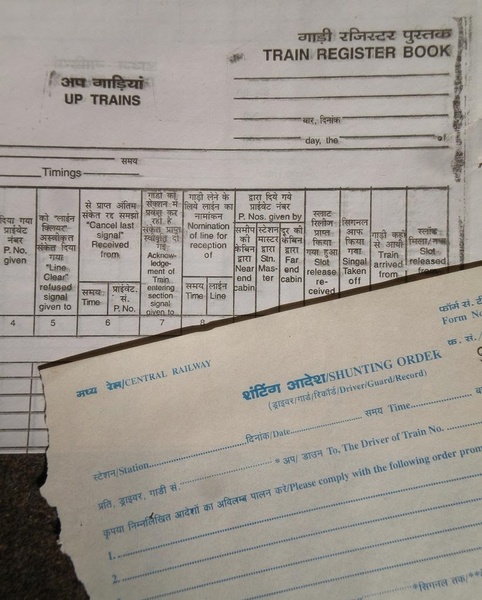 गाड़ी रजिस्टर पुस्तक
TRAIN REGISTER BOOK
अप गाड़ियां
UP TRAINS
वार, दिनांक
day, the of
समय
Timings
दिया गया
प्राईवेट
नंबर
P. No.
given
4
को "लाईन
क्लियर"
अस्वीकृत
संकेत
दिया
गया
"Line
Clear"
refused
signal
given to
5
से प्राप्त अंतिम
संकेत रद्द समझो
"Cancel last
signal"
Received
from
समय
Time
प्राईवेट.
सं.
P. No.
6
गाड़ी को
सेक्शन में
प्रवेश कर
रही है
संकेत प्राप्त
स्वीकृति दी
गई
Acknow-
ledgement
of Train
entering
section
signal
given to
7
गाड़ी लेने के
लिये लाईन का
नामांकन
Nomination
of line for
reception
of
समय
Time
लाईन
Line
8
द्वारा दिये गये
प्राईवेट नंबर
P. Nos. given by
समीप
की
केबिन
द्वारा
Near
end
cabin
स्टेशन
मास्टर
द्वारा
Stn.
Mas-
ter
दूर की
केबिन
द्वारा
Far
end
cabin
स्लाट
रिलीज
प्राप्त
किया
गया
हुआ
Slot
release
re-
ceived
सिगनल
आफ
किया
गया
Singal
Taken
off
गाड़ी कहाँ
से आयी
Train
arrived
from
स्लाट
Slot
released
मध्य रेल/CENTRAL RAILWAY
फॉर्म सं.
Form No
क्र. सं./
शंटिंग आदेश/SHUNTING ORDER
(ड्राइवर/गार्ड/रिकॉर्ड/Driver/Guard/Record)
स्टेशन/Station दिनांक/Date समय Time
प्रति, ड्राइवर, गाडी सं. * अप/ डाउन To, The Driver of Train No.
कृपया निम्नलिखित आदेशों का अविलम्ब पालन करे/Please comply with the following order
1.
2.
*सिगनल तक/**